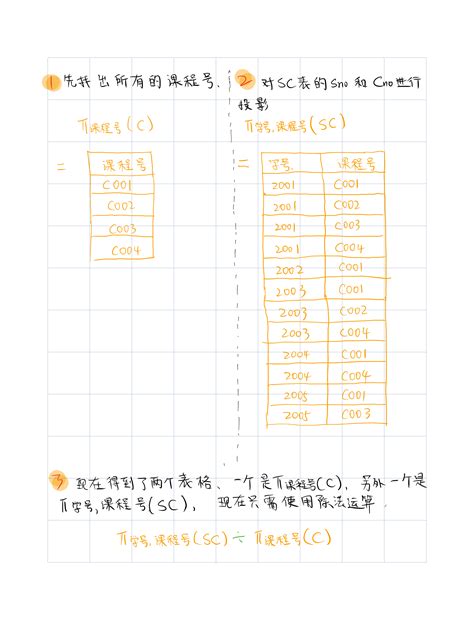 1 先找出所有的课程号.
π课程号(C)
=
课程号
C001
C002
C003
C004
2 对SC表的Sno和Cno进行
投影
π学号.课程号(SC)
=
学号 课程号
2001 C001
2001 C002
2001 C003
2001 C004
2002 C001
2003 C001
2003 C002
2003 C004
2004 C001
2004 C004
2005 C001
2005 C003
3 现在得到了两个表格、一个是π课程号(C), 另外一个是
π学号,课程号(SC), 现在只需使用除法运算.
π学号.课程号(SC) ÷ π课程号(C)